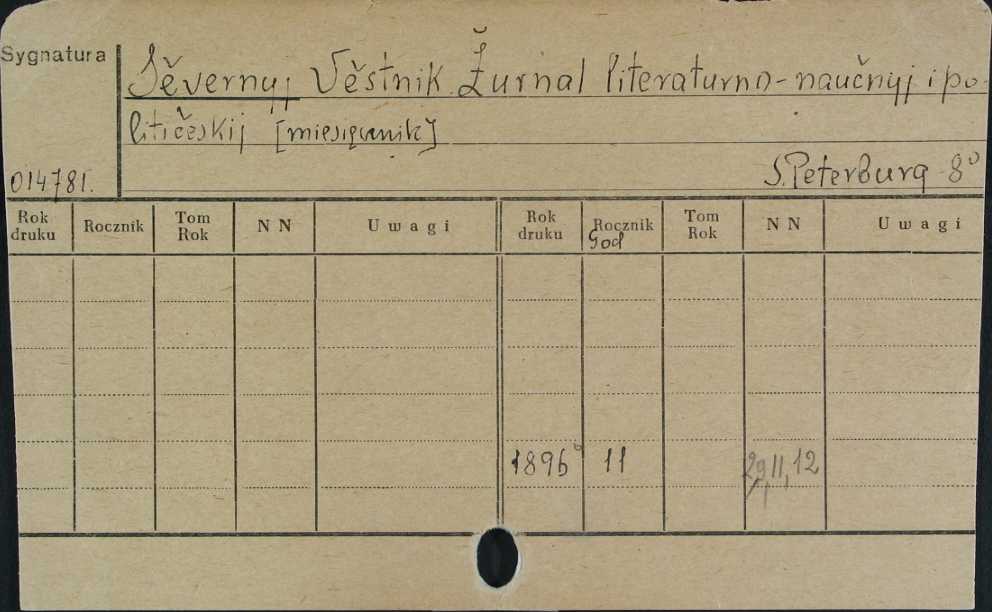 Sygnatura
Sěvernyj Věstnik. Žurnal literaturno-naučnyj i po-
litičeskij [miesięcznik]
S. Peterburg 8°
014781.
Rok druku Rocznik Tom Rok NN Uwagi Rok druku Rocznik God Tom Rok NN Uwagi
1896 11 12